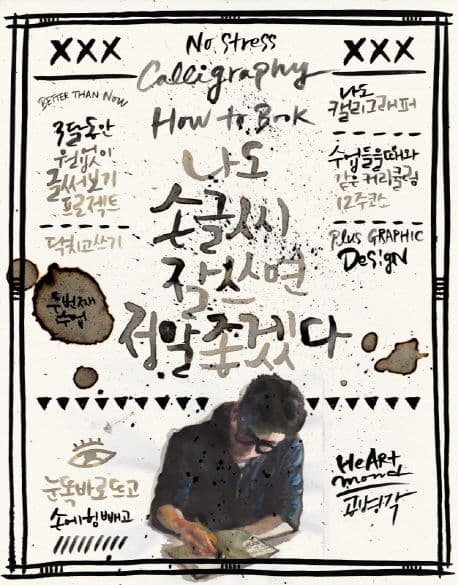 XXX
No Stress
Calligraphy
How to Book
XXX
BETTER THAN NOW
3달동안
원없이
글써보기
프로젝트
닥치고쓰기
두번째
수업
나도
손글씨
잘쓰면
정말좋겠다
나도
캘리그래퍼
수업들을때와
같은커리큘럼
12주코스
Plus GRAPHIC
DesigN
눈똑바로뜨고
손에힘빼고
HeArt
mond
공병각